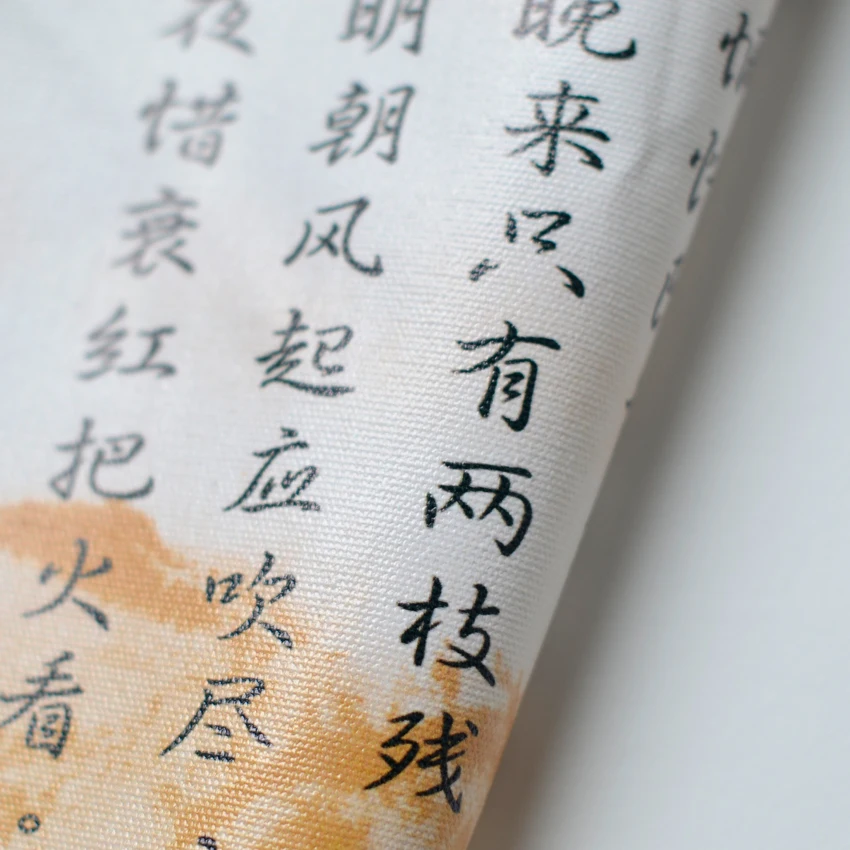 晚来只有两枝残
明朝风起应吹尽
夜惜衰红把火看。